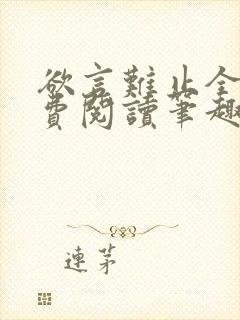 欲言難止全
費閱讀筆趣
連茅